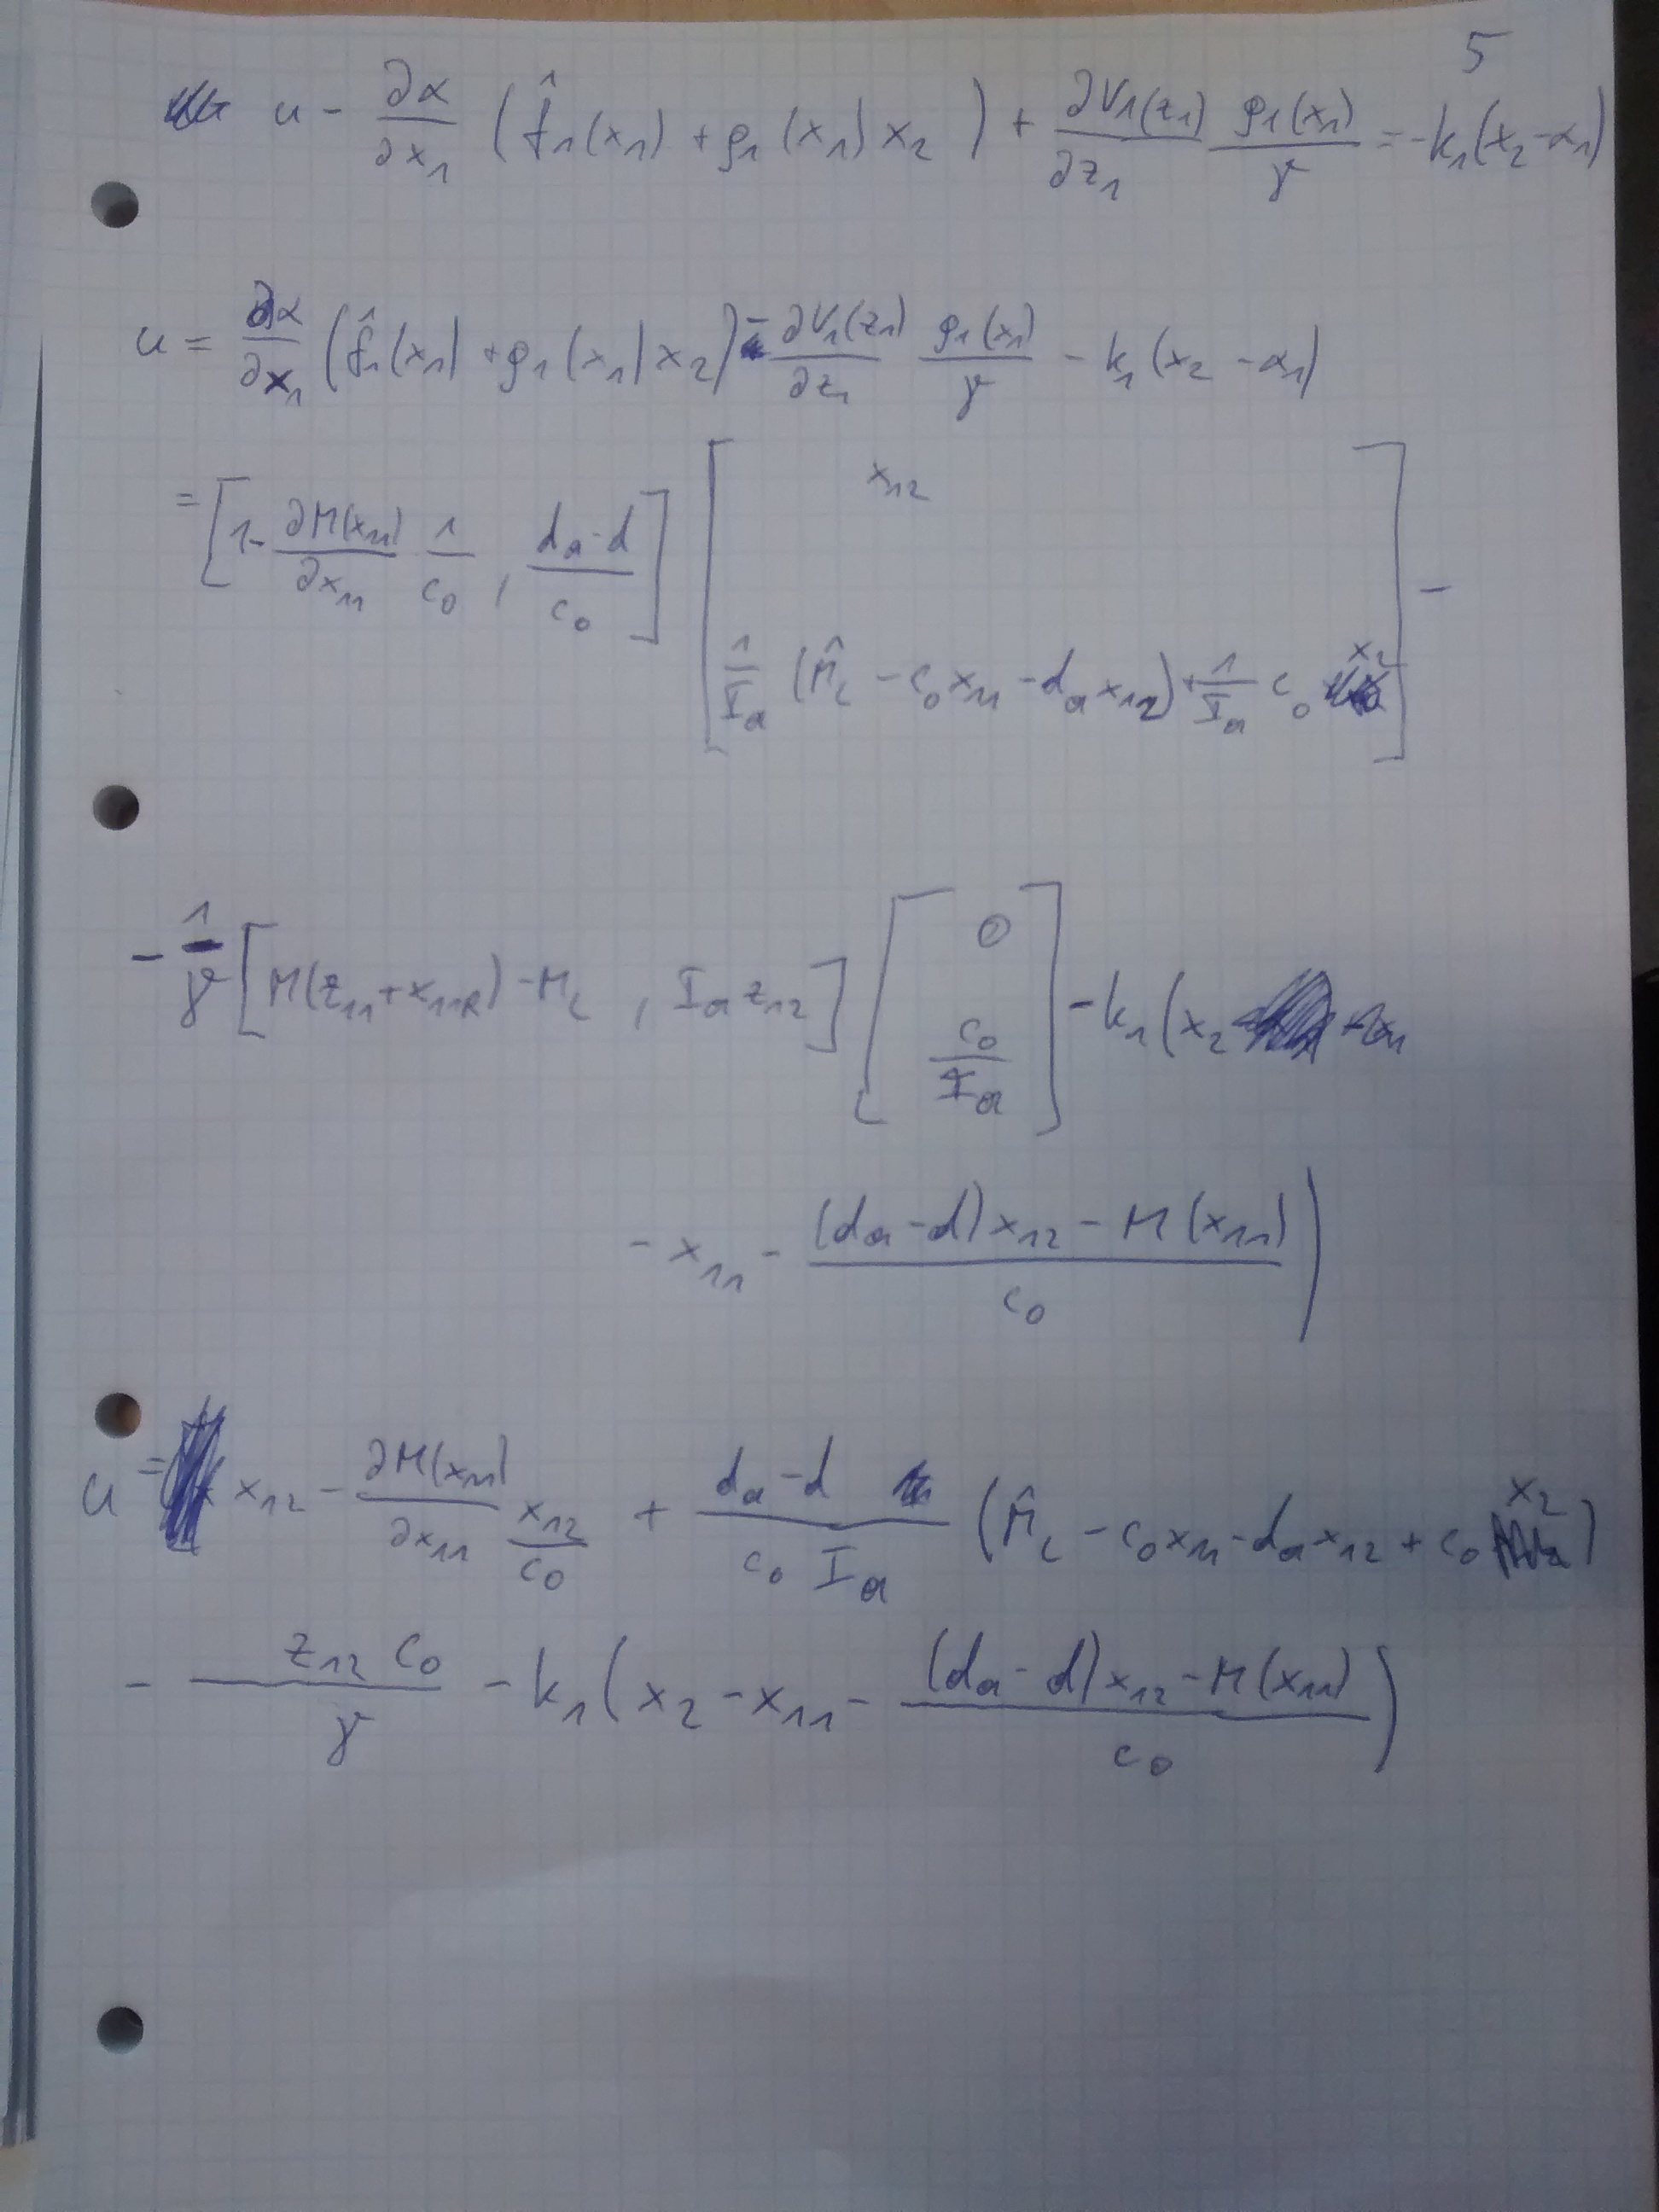 5
u - ∂α/∂x₁ (f̂₁(x₁) + g₁(x₁) x₂) + ∂V₁(z₁)/∂z₁ g₁(x₁)/γ = -k₁(x₂-α₁)
u = ∂α/∂x₁ (f̂₁(x₁) + g₁(x₁) x₂) - ∂V₁(z₁)/∂z₁ g₁(x₁)/γ - k₁(x₂ - α₁)
= [1 - ∂M(x₁₁)/∂x₁₁ 1/c₀ , (dₐ-d)/c₀] [x₁₂ ; 1/Iₐ (M̂_L - c₀x₁₁ - dₐx₁₂) + 1/Iₐ c₀ x₂] -
- 1/γ [M(z₁₁+x₁₁R) - M_L , Iₐ z₁₂] [0 ; c₀/Iₐ] - k₁(x₂
- x₁₁ - ((dₐ-d)x₁₂ - M(x₁₁))/c₀)
u = x₁₂ - ∂M(x₁₁)/∂x₁₁ x₁₂/c₀ + (dₐ-d)/(c₀ Iₐ) (M̂_L - c₀x₁₁ - dₐx₁₂ + c₀ x₂)
- z₁₂ c₀/γ - k₁(x₂ - x₁₁ - ((dₐ-d)x₁₂ - M(x₁₁))/c₀)